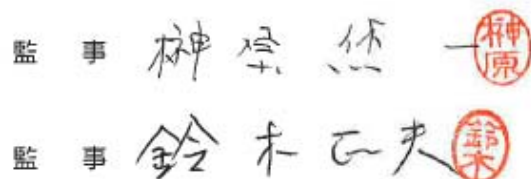 監事 榊原 一 榊原
監事 鈴木正夫 鈴木